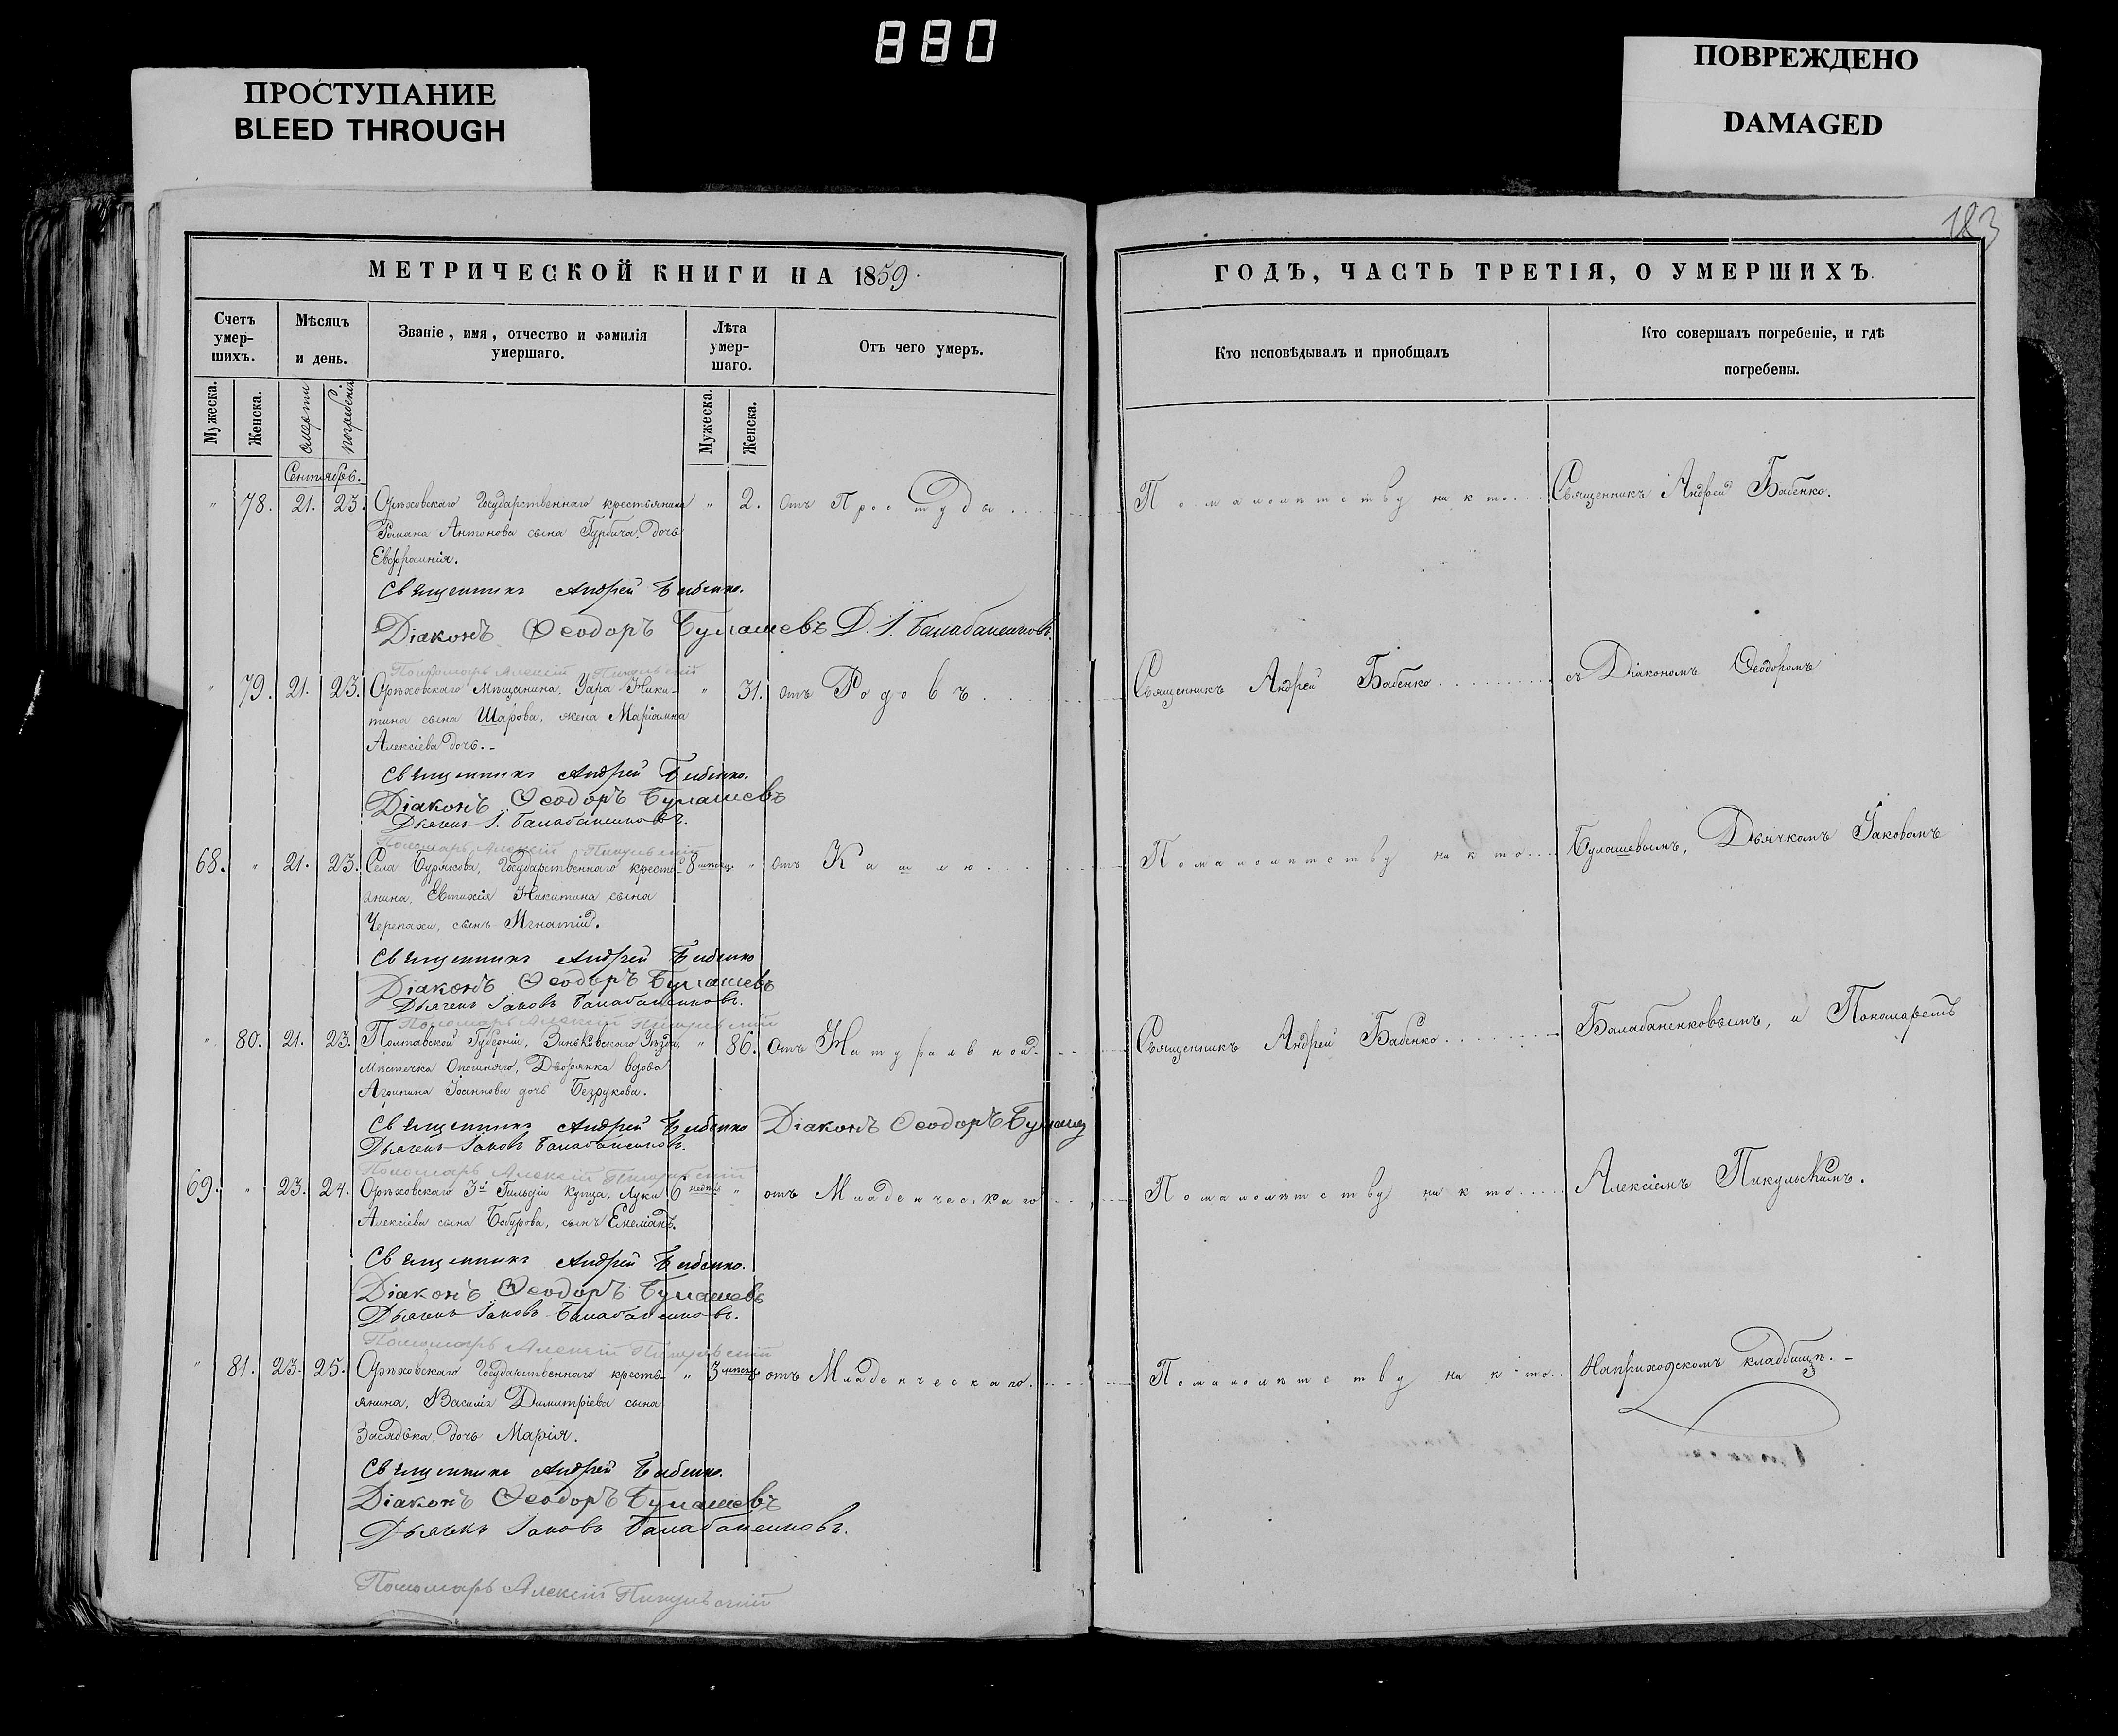 880
ПРОСТУПАНИЕ
BLEED THROUGH
ПОВРЕЖДЕНО
DAMAGED
183
МЕТРИЧЕСКОЙ КНИГИ НА 1859.
Счетъ умер-шихъ.
Мѣсяцъ и день.
Званіе, имя, отчество и фамилія умершаго.
Лѣта умер-шаго.
Отъ чего умеръ.
Мужеска.
Женска.
смерти
погребенія
Мужеска.
Женска.
Сентябрь.
" 78. 21. 23. Орѣховскаго Государственнаго крестьянина " 2. Отъ Простуды
Романа Антонова сына Гурбича, дочь
Евфросинія.
Священникъ Андрей Бабенко.
Діаконъ Ѳеодоръ Булашевъ Д. І. Балабаненковъ.
Пономарь Алексій Пикульскій
" 79. 21. 23. Орѣховскаго Мѣщанина, Уара Ники- " 31. Отъ Родовъ
тина сына Шарова, жена Маріамна
Алексіева дочь.
Священникъ Андрей Бабенко.
Діаконъ Ѳеодоръ Булашевъ
Дьячекъ І. Балабаненковъ.
Пономарь Алексій Пикульскій
68. " 21. 23. Села Бурякова, Государственнаго кресть- 8 мѣсяц. " отъ Кашлю
янина, Евтихія Никитина сына
Черепахи, сынъ Игнатій.
Священникъ Андрей Бабенко
Діаконъ Ѳеодоръ Булашевъ
Дьячекъ Іаковъ Балабаненковъ.
Пономарь Алексій Пикульскій
" 80. 21. 23. Полтавской Губерніи, Зиньковскаго Уѣзда, " 86. Отъ Натуральной
Мѣстечка Опошняго, Дворянка вдова
Агрипина Іоаннова дочь Безрукова.
Священникъ Андрей Бабенко Діаконъ Ѳеодоръ Булашев
Дьячекъ Іаковъ Балабаненковъ.
Пономарь Алексій Пикульскій
69. " 23. 24. Орѣховскаго 3й Гильдіи Купца, Луки 6 недѣль " отъ Младенческаго
Алексіева сына Бобурова, сынъ Емеліанъ.
Священникъ Андрей Бабенко.
Діаконъ Ѳеодоръ Булашевъ
Дьячекъ Іаковъ Балабаненковъ.
Пономарь Алексій Пикульскій
" 81. 23. 25. Орѣховскаго Государственнаго кресть- " 3 мѣсяц. отъ Младенческаго.
янина, Василія Димитріева сына
Засядька, дочь Марія.
Священникъ Андрей Бабенко.
Діаконъ Ѳеодоръ Булашевъ
Дьячекъ Іаковъ Балабаненковъ.
Пономарь Алексій Пикульскій
ГОДЪ, ЧАСТЬ ТРЕТІЯ, О УМЕРШИХЪ
Кто исповѣдывалъ и приобщалъ
Кто совершалъ погребеніе, и гдѣ погребены.
По малолѣтству ни кто. Священникъ Андрей Бабенко.
Священникъ Андрей Бабенко съ Діакономъ Ѳеодоромъ
По малолѣтству ни кто Булашевымъ, Дьячкомъ Іаковомъ
Священникъ Андрей Бабенко Балабаненковымъ, и Пономаремъ
По малолѣтству ни кто Алексіемъ Пикульскимъ.
По малолѣтству ни кто На приходскомъ кладбищѣ.